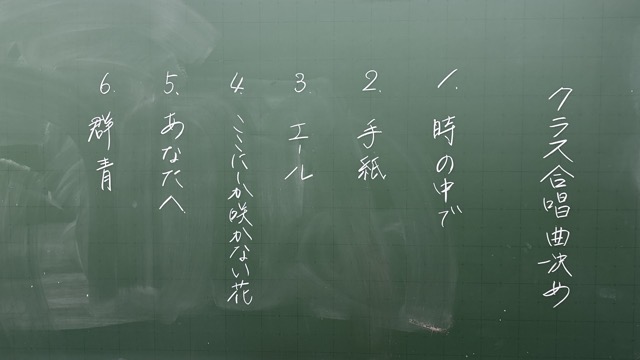 クラス合唱曲決め
1. 時の中で
2. 手紙
3. エール
4. ここにしか咲かない花
5. あなたへ
6. 群青